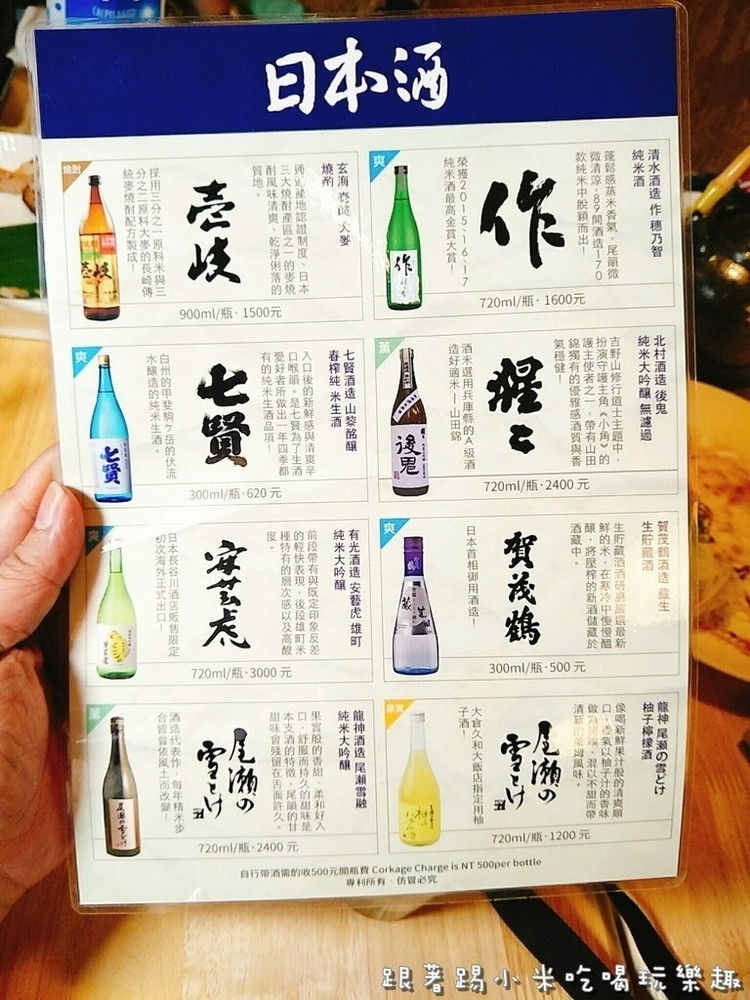 日本酒
燒酎
玄海 壱岐 大麥
燒酌
通過產地認證制度、日本
三大燒酎產區之一的麥燒
酎風味清爽、乾淨俐落的
質地。
壱岐
採用三分之一原料米與三
分之二原料大麥的長崎傳
統麥燒酎配方製成!
900ml/瓶·1500元
爽
清水酒造 作 穗乃智
純米酒
蓬鬆感蒸米香氣,尾韻微
微清涼,89間酒造170
款純米中脫穎而出!
作
榮獲2015、16、17
純米酒最高金賞大賞!
720ml/瓶·1600元
爽
七賢酒造 山黎銘釀
春榨純米生酒
入口後的新鮮感與清爽辛
口喉韻。是七賢為了生酒
愛好者所做出一年四季都
有的純米生酒品項!
七賢
白州的甲斐駒ヶ岳的伏流
水釀造的純米生酒。
300ml/瓶·620 元
薰
北村酒造 後鬼
純米大吟釀 無濾過
吉野山修行道士主題中,
扮演守護主角《小角》的
護主使者之一,帶有山田
錦獨有的優雅感酒質與香
氣穩健!
猩々
後鬼
酒米選用兵庫縣的A級酒
造好適米—山田錦
720ml/瓶·2400 元
爽
有光酒造 安藝虎 雄町
純米大吟釀
前段帶有與既定印象反差
的輕快表現,後段雄町米
種特有的層次感以及高酸
度。
安芸虎
日本長谷川酒店販售限定
初次海外正式出口!
720ml/瓶·3000 元
爽
賀茂鶴酒造 藏生
生貯藏酒
生貯藏酒酒研磨嚴選最新
鮮的米,在寒冷中慢慢醞
釀,將壓榨的新酒儲藏於
酒藏中。
賀茂鶴
日本首相御用酒造!
300ml/瓶·500 元
薰
龍神酒造 尾瀨雪融
純米大吟釀
果實般的香甜、柔和好入
口,舒服而持久的甜味是
本支酒的特徵,尾韻的甘
甜味會殘留在舌面許久。
尾瀬の
雪どけ
酒造代表作,每年精米步
合皆會依風土而改變!
720ml/瓶·2400 元
果實
龍神 尾瀬の雪どけ
柚子檸檬酒
像喝新鮮果汁般的清爽順
口,香氣以柚子汁的香味
做為開端,混以不甜而帶
清新的萊姆風味。
尾瀬の
雪どけ
大倉久和大飯店指定用柚
子酒!
720ml/瓶·1200 元
自行帶酒需酌收500元開瓶費 Corkage Charge is NT 500per bottle
專利所有 仿冒必究
跟著踢小米吃喝玩樂趣